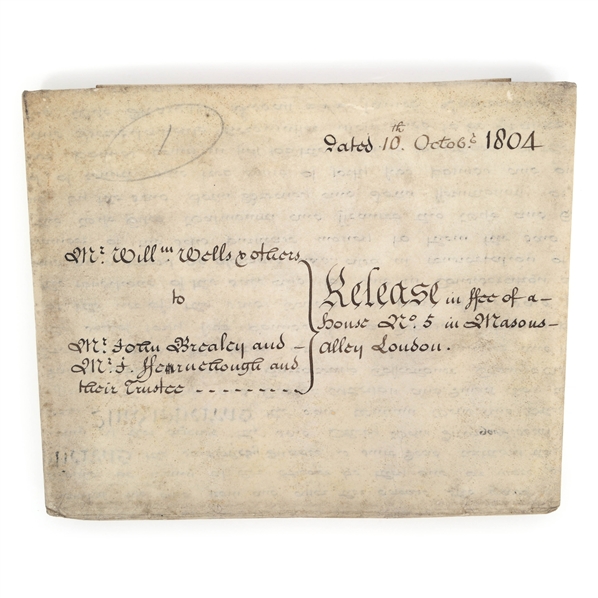 1
Dated 10th. Octobr. 1804
Mr. Willm. Wells & others
to
Mr. John Brealey and –
Mr. J. Ffearnehough and
their Trustee
Release in ffee of a –
house No. 5 in Masons –
Alley London.